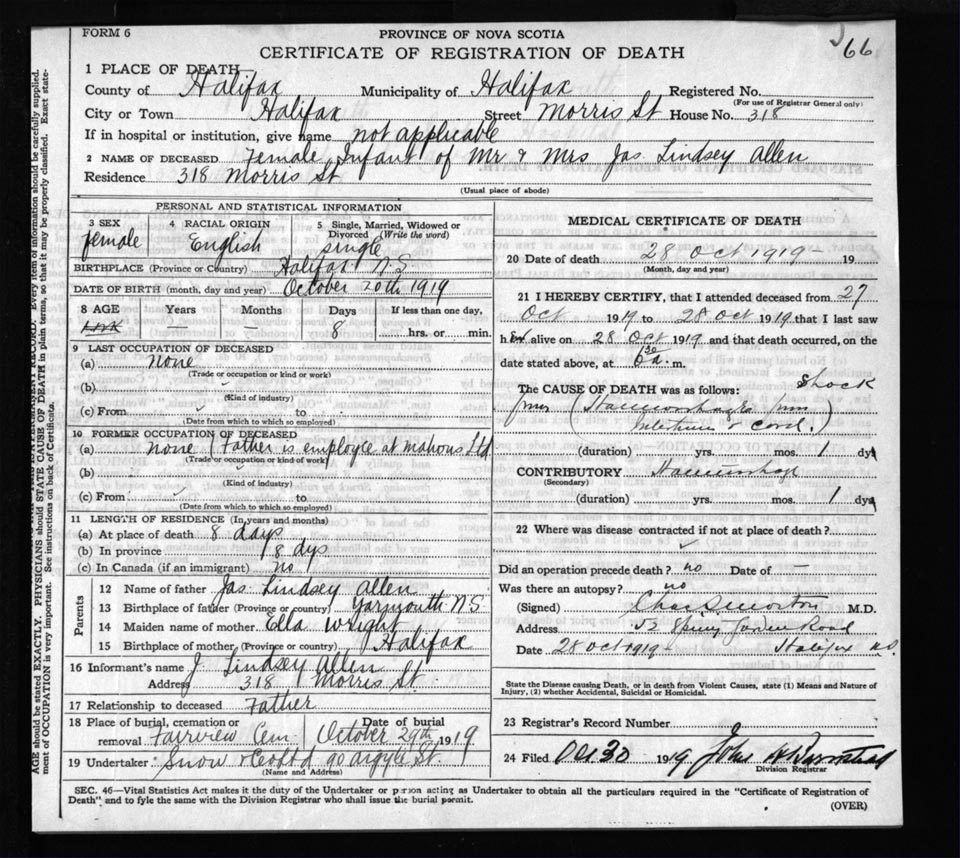 FORM 6
PROVINCE OF NOVA SCOTIA
66
CERTIFICATE OF REGISTRATION OF DEATH
1 PLACE OF DEATH
County of Halifax Municipality of Halifax Registered No.
(For use of Registrar General only)
City or Town Halifax Street Morris St House No. 318
If in hospital or institution, give name not applicable
2 NAME OF DECEASED Female Infant of Mr & Mrs Jas. Lindsey Allen
Residence 318 Morris St
(Usual place of abode)
PERSONAL AND STATISTICAL INFORMATION
3 SEX 4 RACIAL ORIGIN 5 Single, Married, Widowed or Divorced (Write the word)
female English single
BIRTHPLACE (Province or Country) Halifax N.S
DATE OF BIRTH (month, day and year) October 20th 1919
8 AGE Years Months Days If less than one day,
— — 8 hrs. or min.
9 LAST OCCUPATION OF DECEASED
(a) none
(Trade or occupation or kind or work)
(b)
(Kind of industry)
(c) From to
(Date from which to which so employed)
10 FORMER OCCUPATION OF DECEASED
(a) none (Father is employee at Mahons Ltd
(Trade or occupation or kind of work)
(b)
(Kind of industry)
(c) From to
(Date from which to which so employed)
11 LENGTH OF RESIDENCE (In years and months)
(a) At place of death 8 days
(b) In province 8 dys
(c) In Canada (if an immigrant) no
Parents
12 Name of father Jas. Lindsey Allen
13 Birthplace of father (Province or country) Yarmouth N S
14 Maiden name of mother Ella Wright
15 Birthplace of mother (Province or country) Halifax
16 Informant's name J Lindsey Allen
Address 318 Morris St.
17 Relationship to deceased Father
18 Place of burial, cremation or removal Fairview Cem Date of burial October 29th 1919
19 Undertaker Snow & Co Ltd 90 Argyle St.
(Name and Address)
MEDICAL CERTIFICATE OF DEATH
20 Date of death 28 Oct 1919 - 19
(Month, day and year)
21 I HEREBY CERTIFY, that I attended deceased from 27
Oct 1919 to 28 Oct 1919 that I last saw
h er alive on 28 Oct 1919 and that death occurred, on the
date stated above, at 6 30 a. m.
The CAUSE OF DEATH was as follows: Shock
from (Haemorrhage from
intestines & cord.)
(duration) yrs. mos. 1 dys
CONTRIBUTORY Haemorrhage
(Secondary)
(duration) yrs. mos. 1 dys
22 Where was disease contracted if not at place of death?
Did an operation precede death? no Date of —
Was there an autopsy? no
(Signed) M.D.
Address 53 Spring Garden Road
Date 28 Oct 1919 Halifax N.S.
State the Disease causing Death, or in death from Violent Causes, state (1) Means and Nature of Injury, (2) whether Accidental, Suicidal or Homicidal.
23 Registrar's Record Number
24 Filed Oct 30 1919 John
Division Registrar
SEC. 46—Vital Statistics Act makes it the duty of the Undertaker or person acting as Undertaker to obtain all the particulars required in the "Certificate of Registration of
Death" and to fyle the same with the Division Registrar who shall issue the burial permit.
(OVER)
AGE should be stated EXACTLY. PHYSICIANS should STATE CAUSE OF DEATH in plain terms, so that it may be properly classified. Exact state-
ment of OCCUPATION is very important. See instructions on back of Certificate.
Every item of information should be carefully supplied.